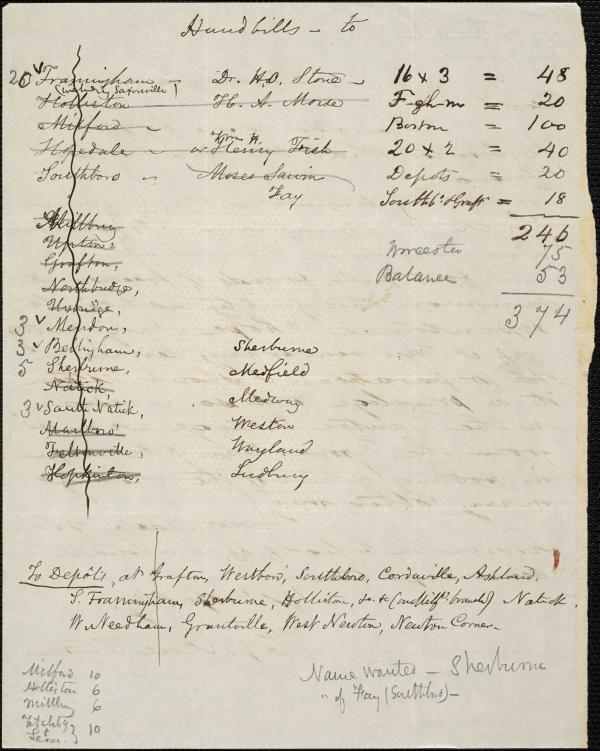 Handbills - to
20 ✓ Framingham - Dr. H.O. Stone - 16 x 3 = 48
(including Saxonville)
Holliston H. A. Morse F-gh-m = 20
Milford - Boston = 100
Wm. H.
Hopedale - or Henry Fish 20 x 2 = 40
Southboro - Moses Sawin Depots = 20
Fay Southb.o & Graft. = 18
Millbury 246
Upton, Worcester 75
Grafton, Balance 53
Northbridge, 374
Uxbridge,
3 ✓ Mendon,
3 ✓ Bellingham, Sherburne
5 Sherburne, Medfield
Natick Medway
3 ✓ South Natick,
Marlboro' Weston
Feltonville, Wayland
Hopkinton, Sudbury
To Depôts, at Grafton, Westboro', Southboro, Cordaville, Ashland,
S. Framingham, Sherburne, Holliston, &c &c (and Milfd. branch) Natick.
W. Needham, Grantville, West Newton, Newton Corner-
Name wanted - Sherburne
" of Fay (Southboro) -
Milford 10
Holliston 6
Millbury 6
Fitchbg
& 10
Leom.